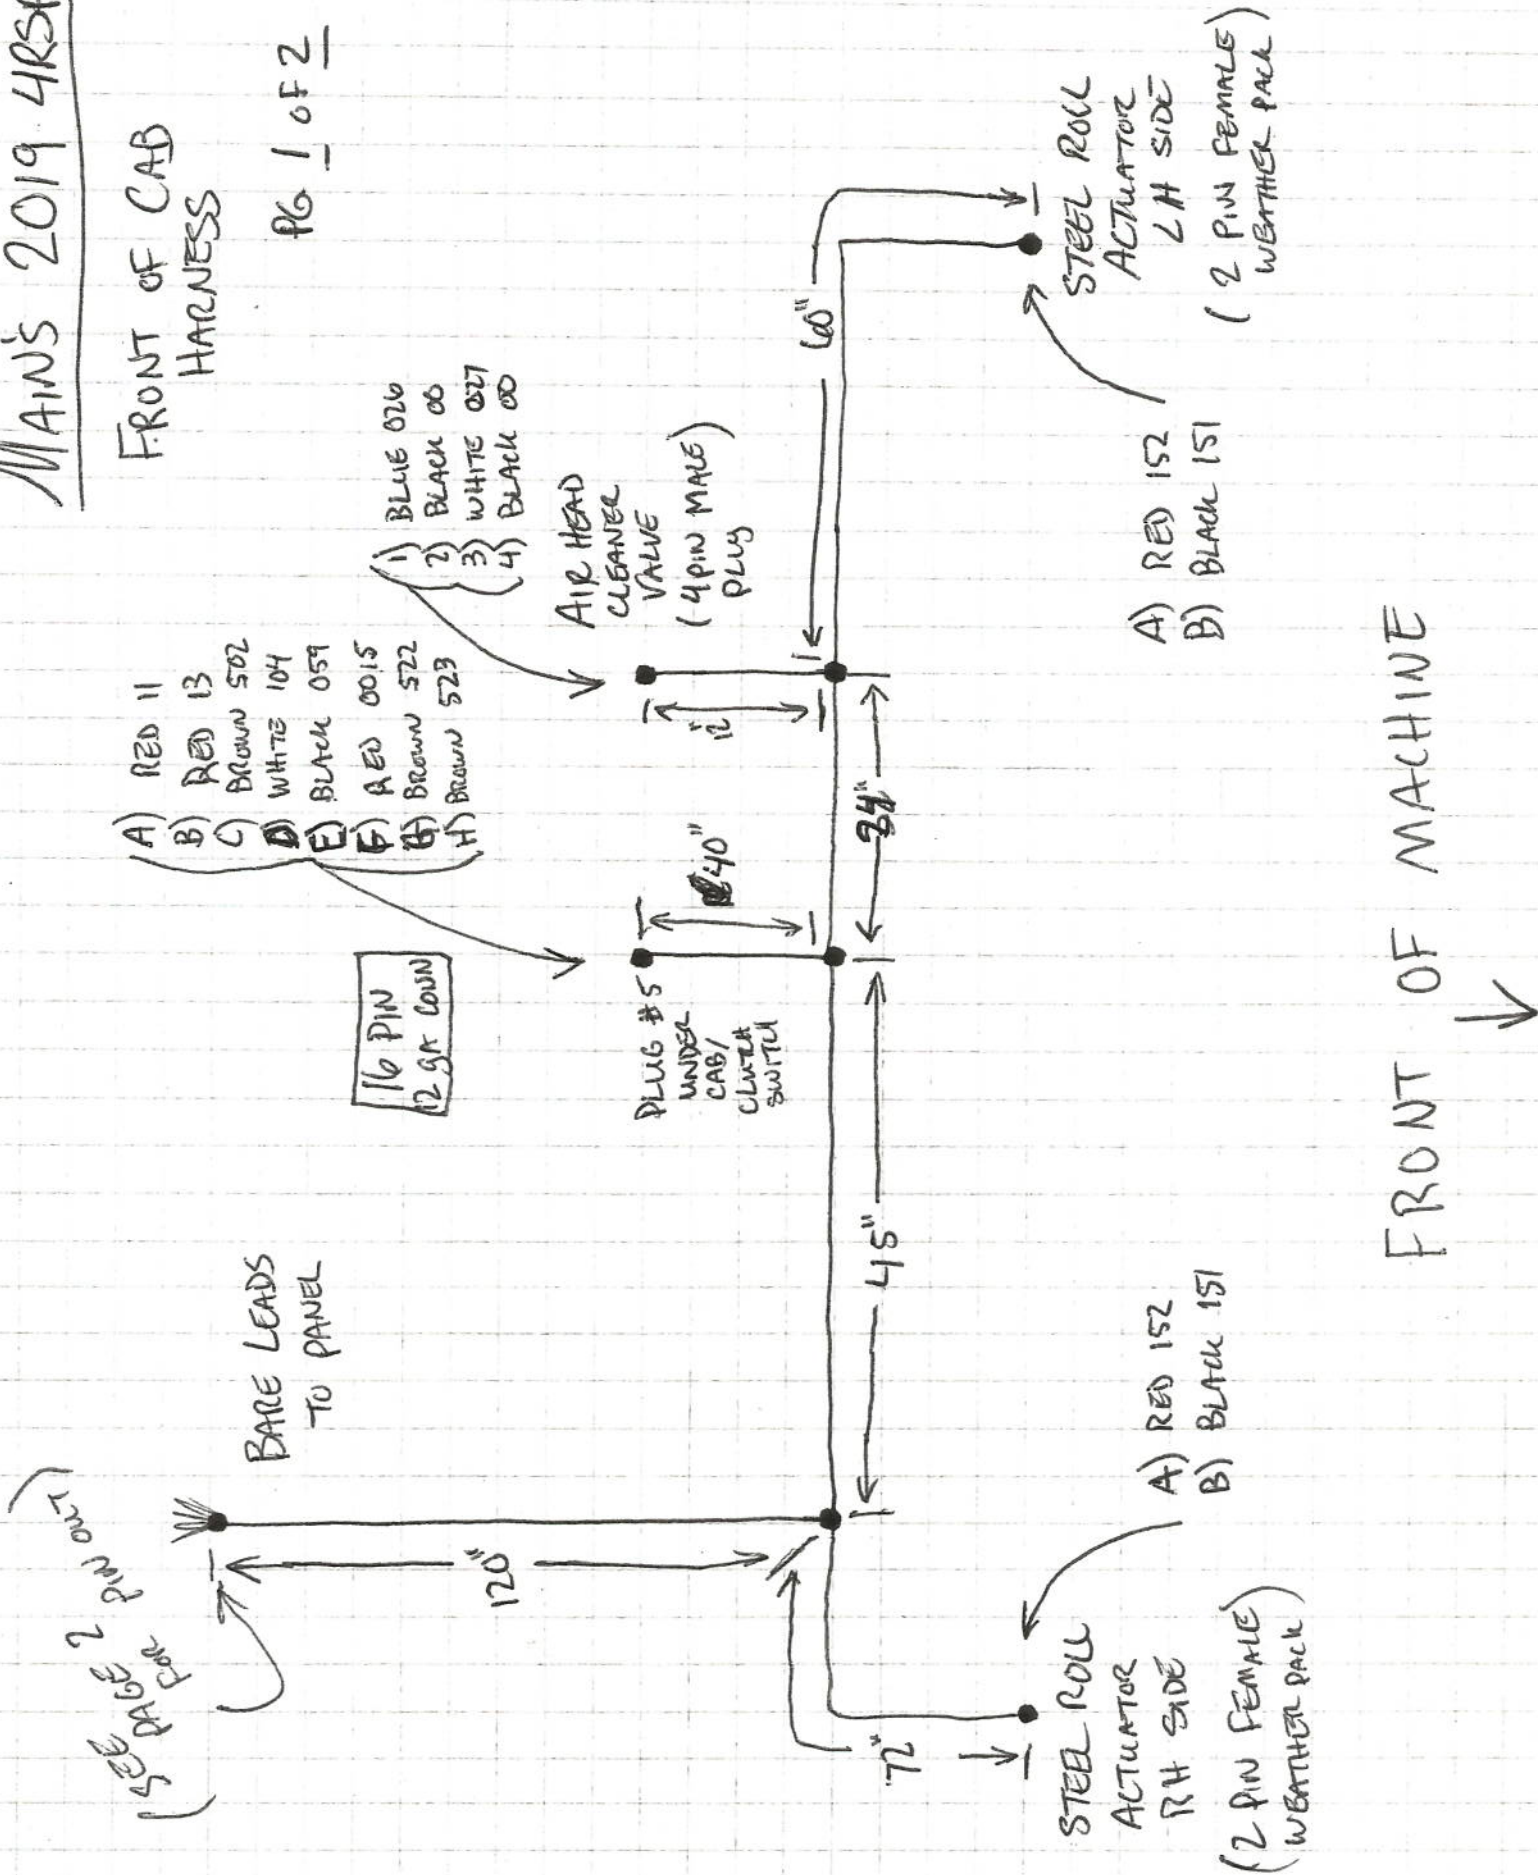 MAIN'S 2019 4RSH
FRONT OF CAB
HARNESS
PG 1 OF 2
(SEE PAGE 2
FOR PIN OUT)
BARE LEADS
TO PANEL
120"
16 PIN
12 GA CONN
A) RED 11
B) RED 13
C) BROWN 502
D) WHITE 104
E) BLACK 059
F) RED 0015
G) BROWN 522
H) BROWN 523
PLUG #5
UNDER
CAB/
CLUTCH
SWITCH
40"
1) BLUE 026
2) BLACK 00
3) WHITE 027
4) BLACK 00
AIR HEAD
CLEANER
VALVE
(4 PIN MALE)
PLUG
12"
72"
45"
60"
STEEL ROLL
ACTUATOR
RH SIDE
(2 PIN FEMALE)
WEATHER PACK)
A) RED 152
B) BLACK 151
A) RED 152
B) BLACK 151
STEEL ROLL
ACTUATOR
LH SIDE
(2 PIN FEMALE)
WEATHER PACK)
FRONT OF MACHINE